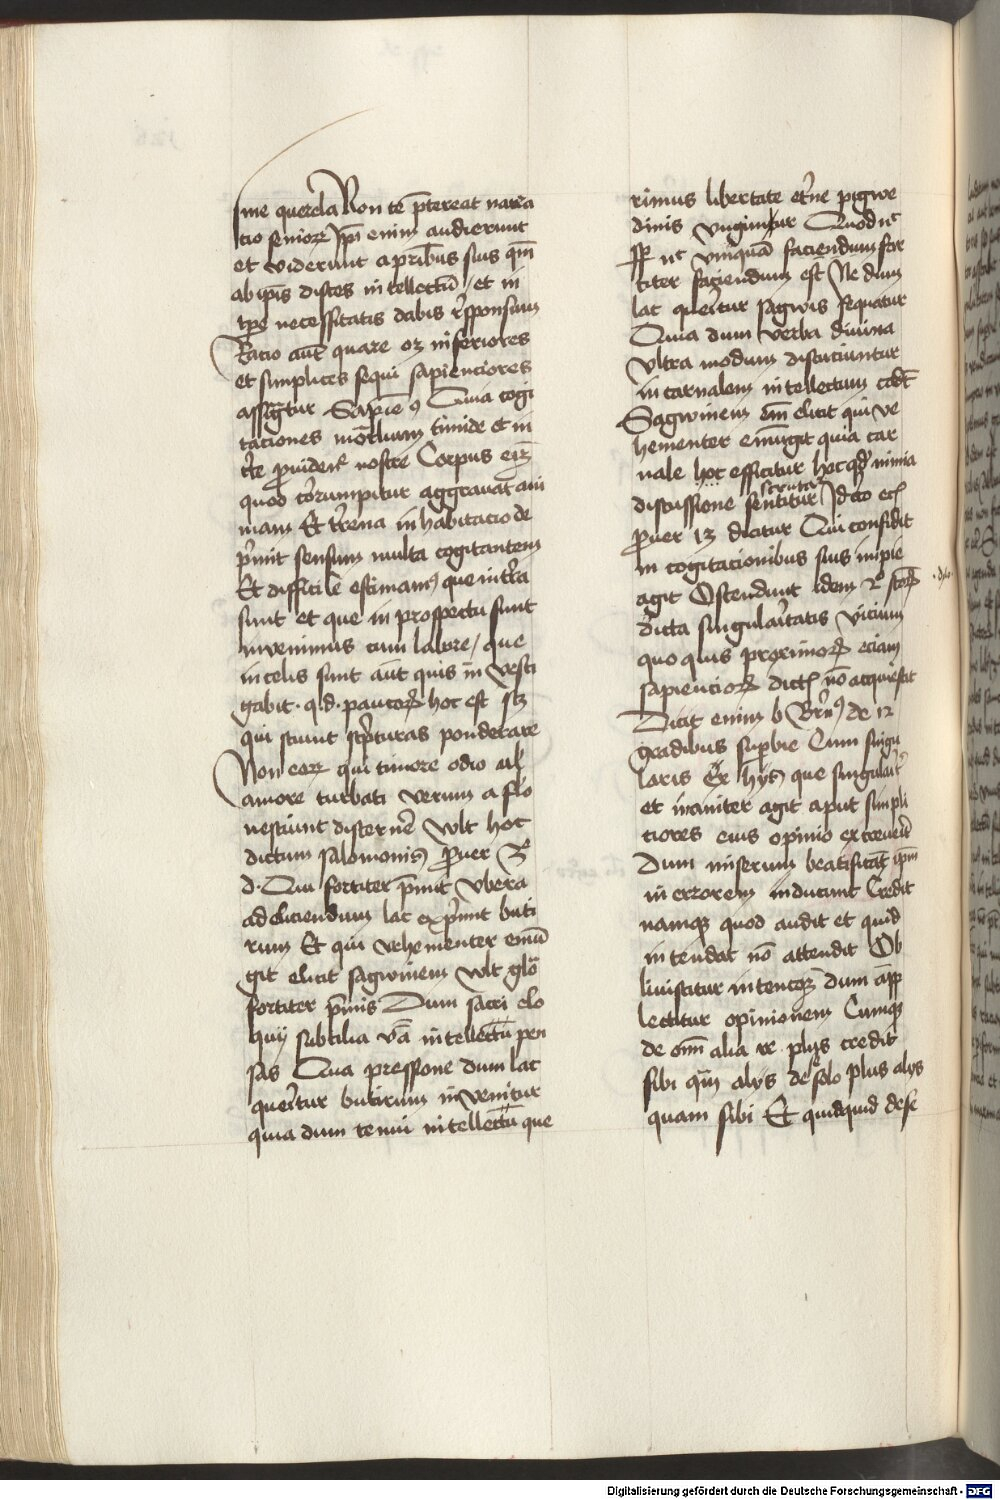 sine querela Non te p̄tereat narra
cio senioꝝ Ip̄i enim audierunt
et viderunt a prībus suis qm̄
ab ip̄is disces intellectū / et in
tpe necessitatis dabis rn̄sponsum
Racio aūt quare oꝫ inferiores
et simplices sequi sapienciores
assigtur Sapie 9 Quia cogi
taciones mortalium timide et in
cte ꝓuidenc̄ nostre Corpus eiꝫ
quod corrumpitur aggrauat ani
mam Et terrena inhabitacio de
p̄mit sensum multa cogitantem
Et difficile estimamꝰ que in terra
sunt et que in prospectu sunt
invenimus cum labore / que
in celis sunt aūt quis in vesti
gabit · q.d. paucoꝝ hoc est sꝫ
qui sciunt scpturas ponderare
Non eoꝝ qui timore odio ul'
amore turbati verum a flo
nesciunt discernē Vult hoc
dictum salomonis ꝓuer
d. Qui fortiter p̄mit vbera
ad eliciendum lac exp̄mit buti
rum Et qui vehementer emū
git elicit sagwinem Vult glo
fortiter p̄mis Dum sacri elo
quij subtilia vā intellectū pen
sas Qua pressione dum lac
queritur butirum invenitur
quia dum tenui intellectū que
rimus libertate etrne pigwe
dinis vngimur Quod nc̄
nc̄ vmquā faciendum for
titer faciendum est Ne dum
lac queritur sagwis sequatur
Quia dum verba diuina
vltra modum discuciuntur
in carnalem intellectum cadt
Sagwinem em̄ elicit qui ve
hementer emūgit quia car
nale hoc efficitur hec qd nimia
discussione sentitur scrutatur Ideo eciā
ꝓuer 13 dicitur Qui confidit
in cogitacionibus suis impie
agit Ostendunt idem
dicta singularitatis vicium
quo quis proximoꝝ eciam
sapiencioꝝ dict' nō acquiescit
Dicit enim b Brn̄ꝰ de 12
gradibus supbie Cum singu
laris que singularr
et inaniter agit aput simpli
ciores eius opinio excreuerit
Dum miserum beatificāt ip̄m
in errorem inducunt Credit
namqꝫ quod audit et quid
intendat nō attendit Ob
liuiscitur intencioꝫ dum amp
lectitur opinionem Cumqꝫ
de om̄ alia re plus credit
sibi qm̄ alijs de se solo plus alijs
quam sibi Et quidquid dese